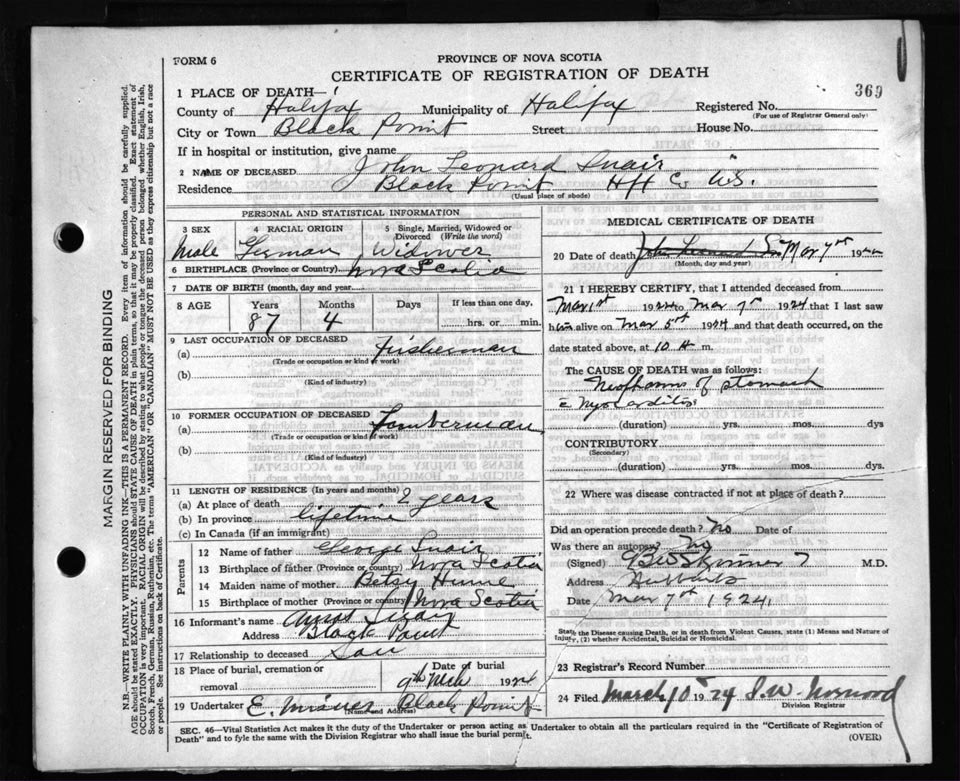 FORM 6
PROVINCE OF NOVA SCOTIA
CERTIFICATE OF REGISTRATION OF DEATH
369
1 PLACE OF DEATH—
County of Halifax Municipality of Halifax Registered No.
(For use of Registrar General only)
City or Town Black Point Street House No.
If in hospital or institution, give name
2 NAME OF DECEASED John Leonard Snair
Residence Black Point Hfx Co N.S.
(Usual place of abode)
MARGIN RESERVED FOR BINDING
N.B.—WRITE PLAINLY WITH UNFADING INK—THIS IS A PERMANENT RECORD. Every item of information should be carefully supplied.
AGE should be stated EXACTLY. PHYSICIANS should STATE CAUSE OF DEATH in plain terms, so that it may be properly classified. Exact statement of
OCCUPATION is very important. RACIAL ORIGIN will be described by stating to what people or tongue the deceased person belonged whether English, Irish,
Scotch, French, German, Russian, Ruthenian, etc. The terms "AMERICAN" OR "CANADIAN" MUST NOT BE USED as they express citizenship but not a race
or people. See instructions on back of Certificate.
PERSONAL AND STATISTICAL INFORMATION
3 SEX 4 RACIAL ORIGIN 5 Single, Married, Widowed or
Divorced (Write the word)
Male German Widower
6 BIRTHPLACE (Province or Country) Nova Scotia
7 DATE OF BIRTH (month, day and year)
8 AGE Years Months Days If less than one day,
87 4 hrs. or min.
9 LAST OCCUPATION OF DECEASED
(a) Fisherman
(Trade or occupation or kind of work)
(b)
(Kind of industry)
10 FORMER OCCUPATION OF DECEASED
(a) Lumberman
(Trade or occupation or kind of work)
(b)
(Kind of industry)
11 LENGTH OF RESIDENCE (In years and months)
(a) At place of death 2 years
(b) In province lifetime
(c) In Canada (if an immigrant)
Parents
12 Name of father George Snair
13 Birthplace of father (Province or country) Nova Scotia
14 Maiden name of mother Betsy Hume
15 Birthplace of mother (Province or country) Nova Scotia
16 Informant's name Snair
Address Black Point
17 Relationship to deceased Son
18 Place of burial, cremation or
removal
Date of burial
9th Mch 1924
19 Undertaker E. Misner Black Point
(Name and Address)
MEDICAL CERTIFICATE OF DEATH
20 Date of death Mar 7th 19
(Month, day and year)
21 I HEREBY CERTIFY, that I attended deceased from
Mar 1st 1924 to Mar 7th 1924 that I last saw
him alive on Mar 5th 1924 and that death occurred, on the
date stated above, at 10 A m.
The CAUSE OF DEATH was as follows:
Neoplasm of stomach
c Myocarditis
(duration) yrs. mos. dys
CONTRIBUTORY
(Secondary)
(duration) yrs. mos. dys.
22 Where was disease contracted if not at place of death?
Did an operation precede death? No Date of
Was there an autopsy No
(Signed) Skinner M.D.
Address Hubbards
Date Mar 7th 1924
State the Disease causing Death, or in death from Violent Causes, state (1) Means and Nature of
Injury, (2) whether Accidental, Suicidal or Homicidal.
23 Registrar's Record Number
24 Filed March 10 1924 S. W. Norwood
Division Registrar
SEC. 46—Vital Statistics Act makes it the duty of the Undertaker or person acting as Undertaker to obtain all the particulars required in the "Certificate of Registration of
Death" and to fyle the same with the Division Registrar who shall issue the burial permit.
(OVER)